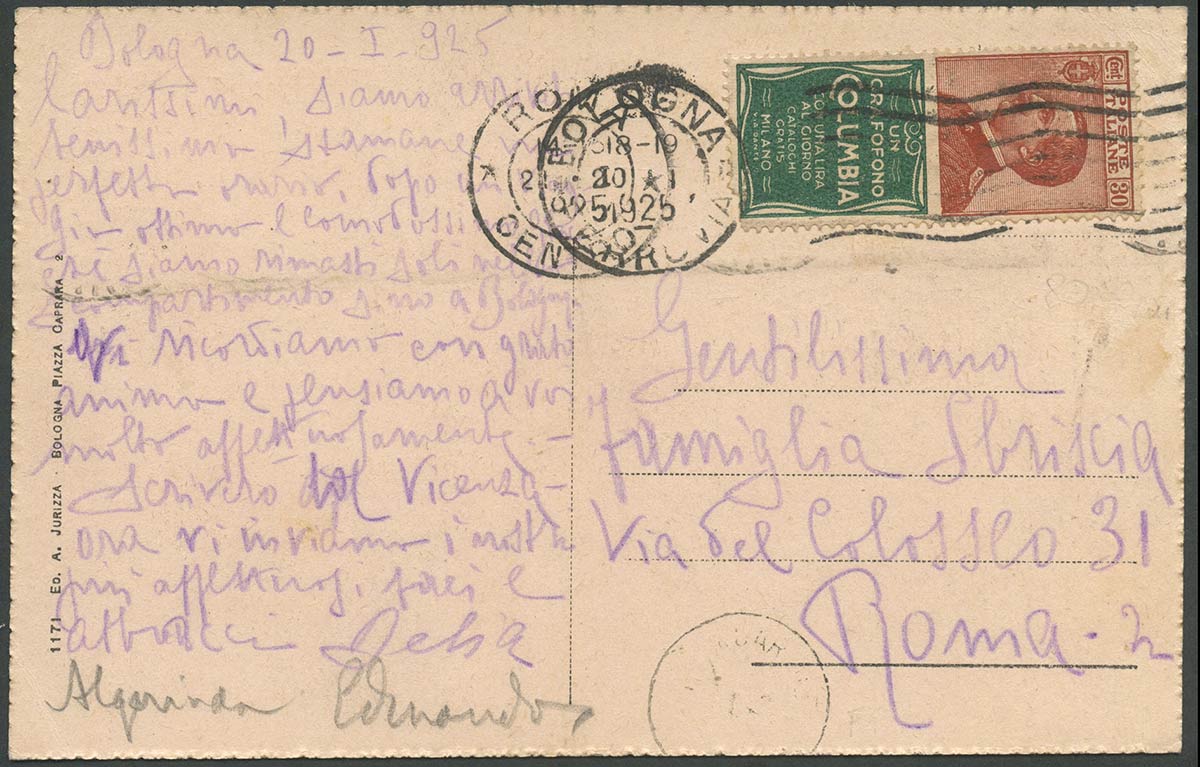 Bologna 20-I-925
Carissimi siamo
benissimo stamane in
perfetto orario dopo un
ottimo e
siamo rimasti soli nello
scompartimento sino a Bologna
Vi ricordiamo con grato
animo e pensiamo a voi
molto affettuosamente.-
Scriverò Vicenza-
ora vi inviamo i nostri
più affettuosi baci e
abbracci
Edmondo
1171 ED. A. JURIZZA BOLOGNA PIAZZA CAPRARA 2
BOLOGNA
18-19
20 I
1925
FERROVIA
ROMA
CENTRO
1925
UN
GRAFOFONO
COLUMBIA
CON UNA LIRA
AL GIORNO
CATALOGHI
GRATIS
MILANO
VIA DANTE 9
Cent. 30
POSTE
ITALIANE
Gentilissima
famiglia Sbriscia
Via del Colosseo 31
Roma-